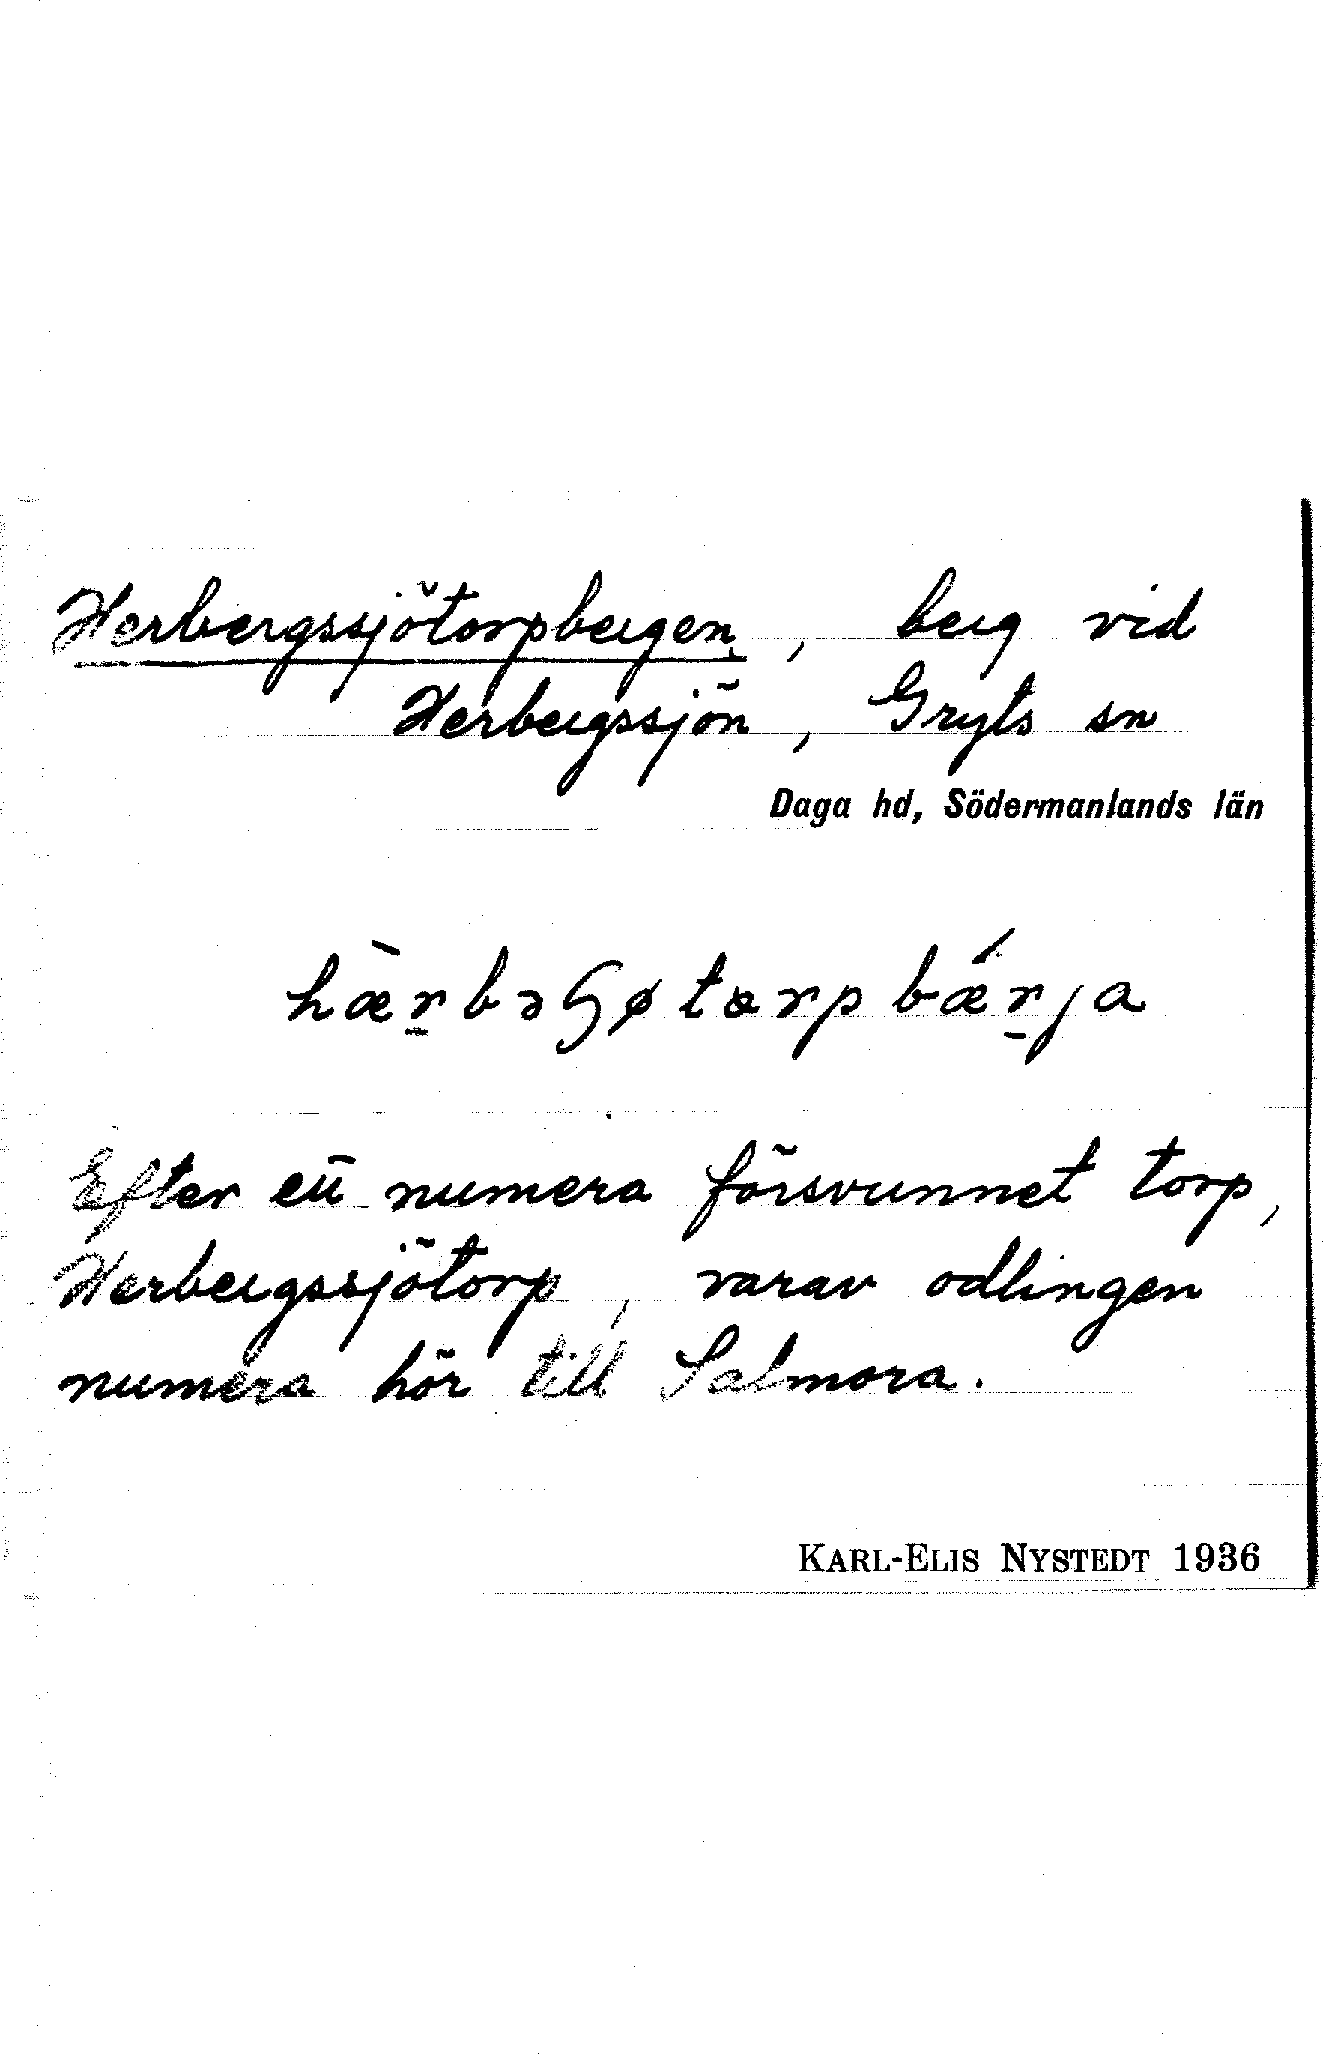 Herbergssjötorpbergen, berg vid
Herbergssjön, Gryts sn
Daga hd, Södermanlands län
hæ̀r̠bəɧøtɷrpbǽr̠ja
Efter ett numera försvunnet torp,
Herbergssjötorp, varav odlingen
numera hör till Salmora.
KARL-ELIS NYSTEDT 1936